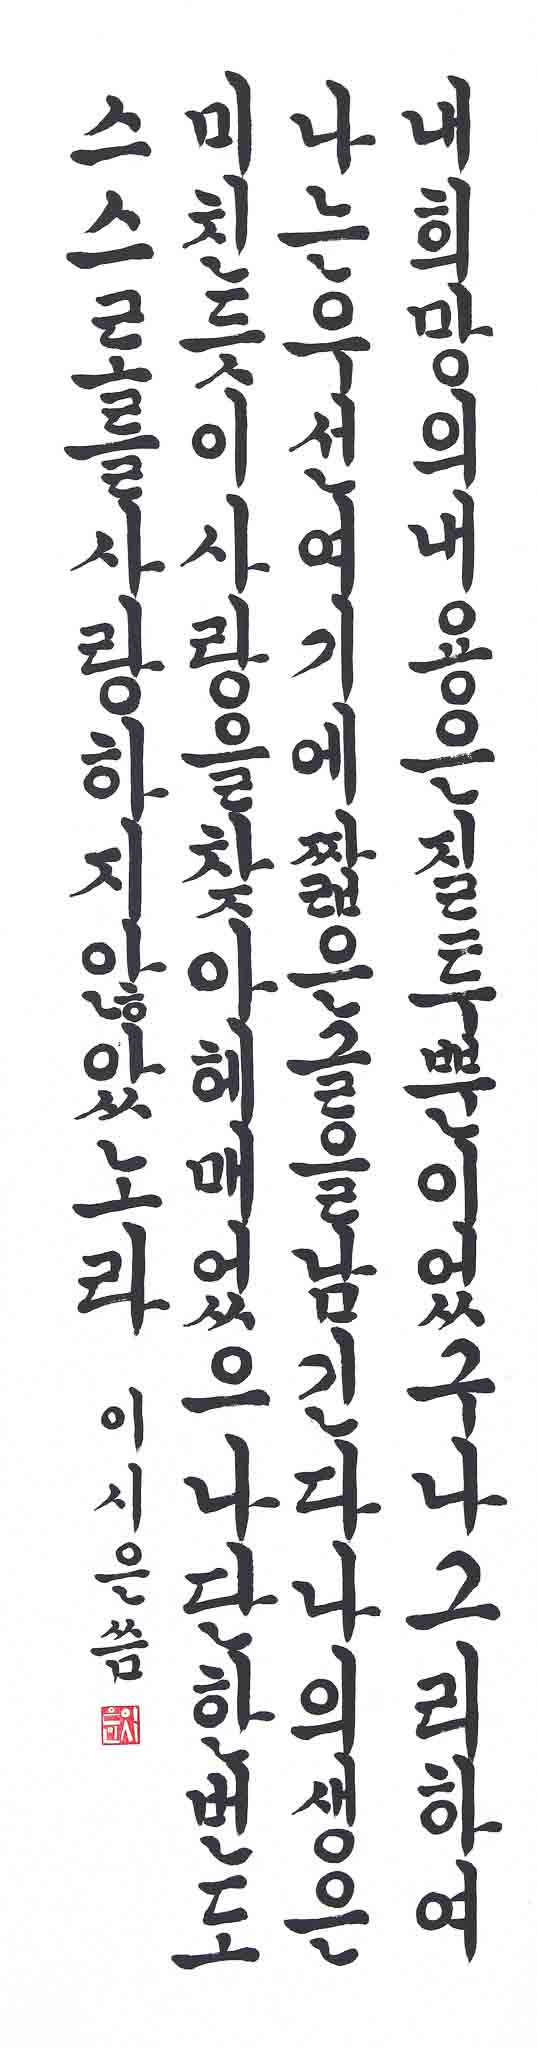 내희망의내용은질투뿐이었구나그리하여
나는우선여기에짧은글을남긴다나의생은
미친듯이사랑을찾아헤매었으나단한번도
스스로를사랑하지않았노라 이시은씀